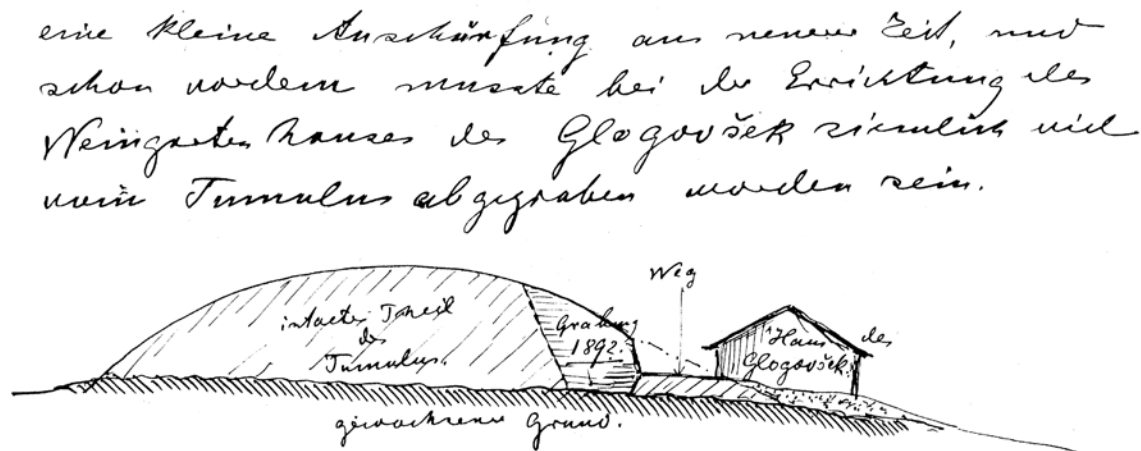 eine kleine Anschürfung aus neuerer Zeit, und
schon vordem musste bei der Errichtung des
Weingartenhauses des Glogovšek ziemlich viel
vom Tumulus abgegraben worden sein.
Weg
intacter Theil
des
Tumulus.
Grabung
1892.
Haus des
Glogovšek.
gewachsener Grund.